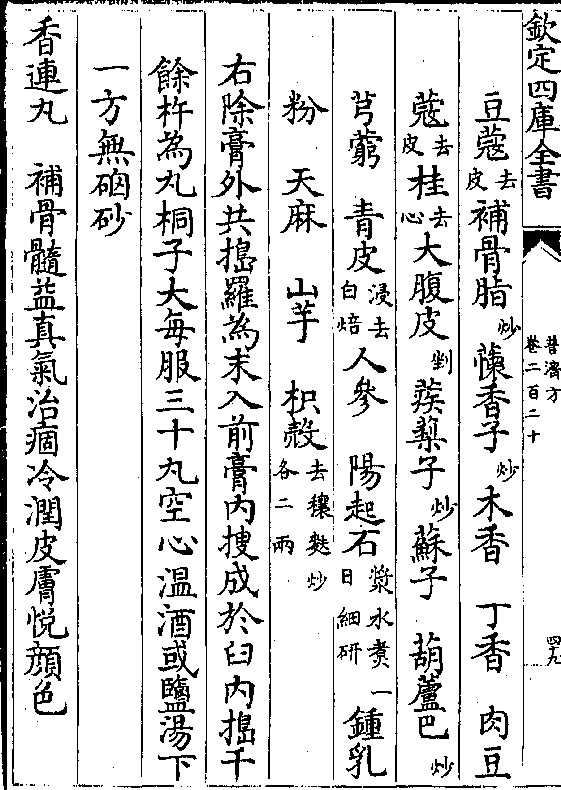 欽定四庫全書
普濟方
卷二百二十
四十九
豆蔻去皮補骨脂炒 懷香子炒 木香 丁香 肉豆
蔻去皮桂去心大腹皮剉 蒺蔾子炒 蘇子 葫蘆巴炒
芎藭 青皮浸去白焙人參 陽起石漿水煑一日細研 鍾乳
粉 天麻 山芋 枳殻去穰麩炒各二兩
右除膏外共搗羅為末入前膏内搜成於臼内搗千
餘杵為丸桐子大每服三十丸空心温酒或鹽湯下
一方無硇砂
香連丸 補骨髓益真氣治痼冷潤皮膚悦顔色